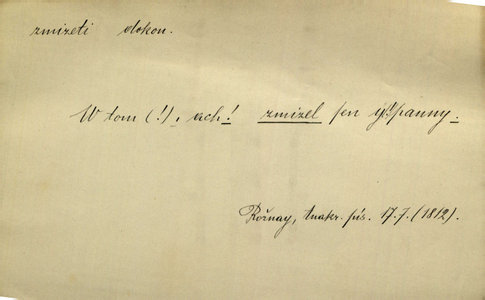 zmizeti dokon.
W tom (!), ach! zmizel sen y panny.
Rožnay, Anakr. pís. 17.7. (1812).